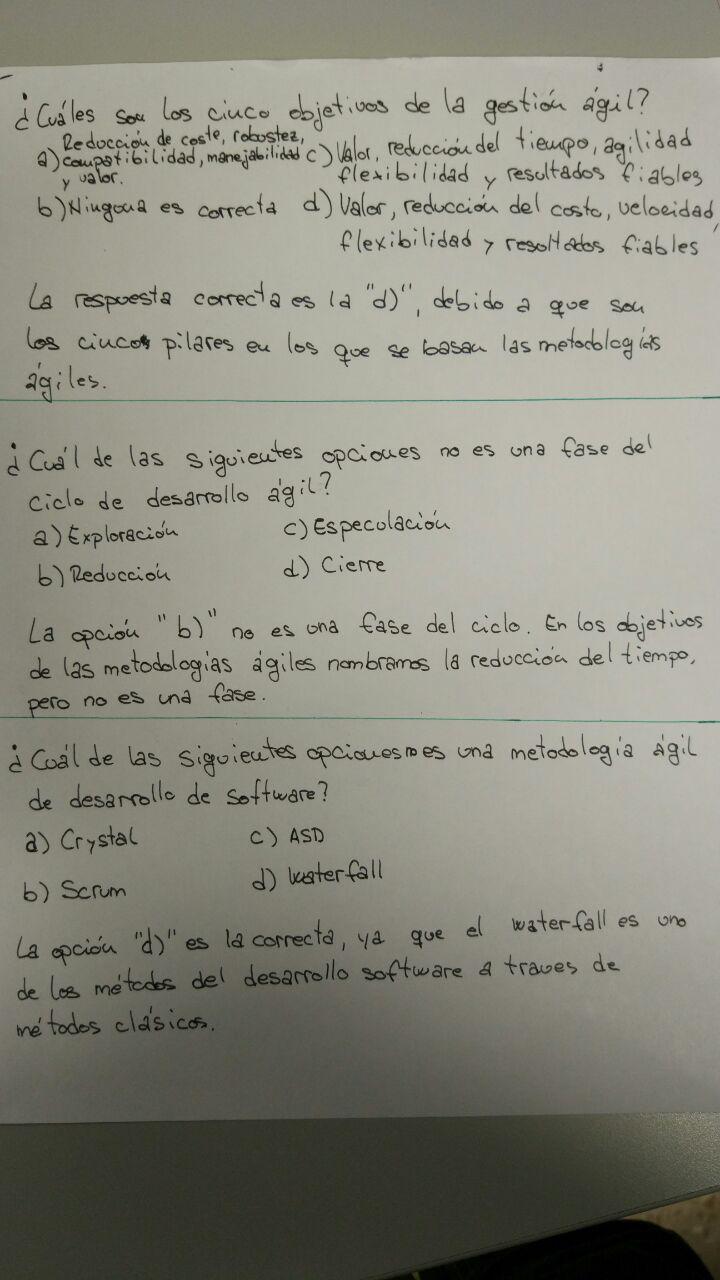 ¿Cuáles son los cinco objetivos de la gestión ágil?
a) Reducción de coste, robustez,
compatibilidad, manejabilidad
y valor.
c) Valor, reducción del tiempo, agilidad
flexibilidad y resultados fiables
b) Ninguna es correcta
d) Valor, reducción del costo, velocidad,
flexibilidad y resultados fiables
La respuesta correcta es la "d)", debido a que son
los cinco pilares en los que se basan las metodologías
ágiles.
¿Cuál de las siguientes opciones no es una fase del
ciclo de desarrollo ágil?
a) Exploración
c) Especulación
b) Reducción
d) Cierre
La opción "b)" no es una fase del ciclo. En los objetivos
de las metodologías ágiles nombramos la reducción del tiempo,
pero no es una fase.
¿Cuál de las siguientes opciones no es una metodología ágil
de desarrollo de software?
a) Crystal
c) ASD
b) Scrum
d) Waterfall
La opción "d)" es la correcta, ya que el waterfall es uno
de los métodos del desarrollo software a traves de
métodos clásicos.